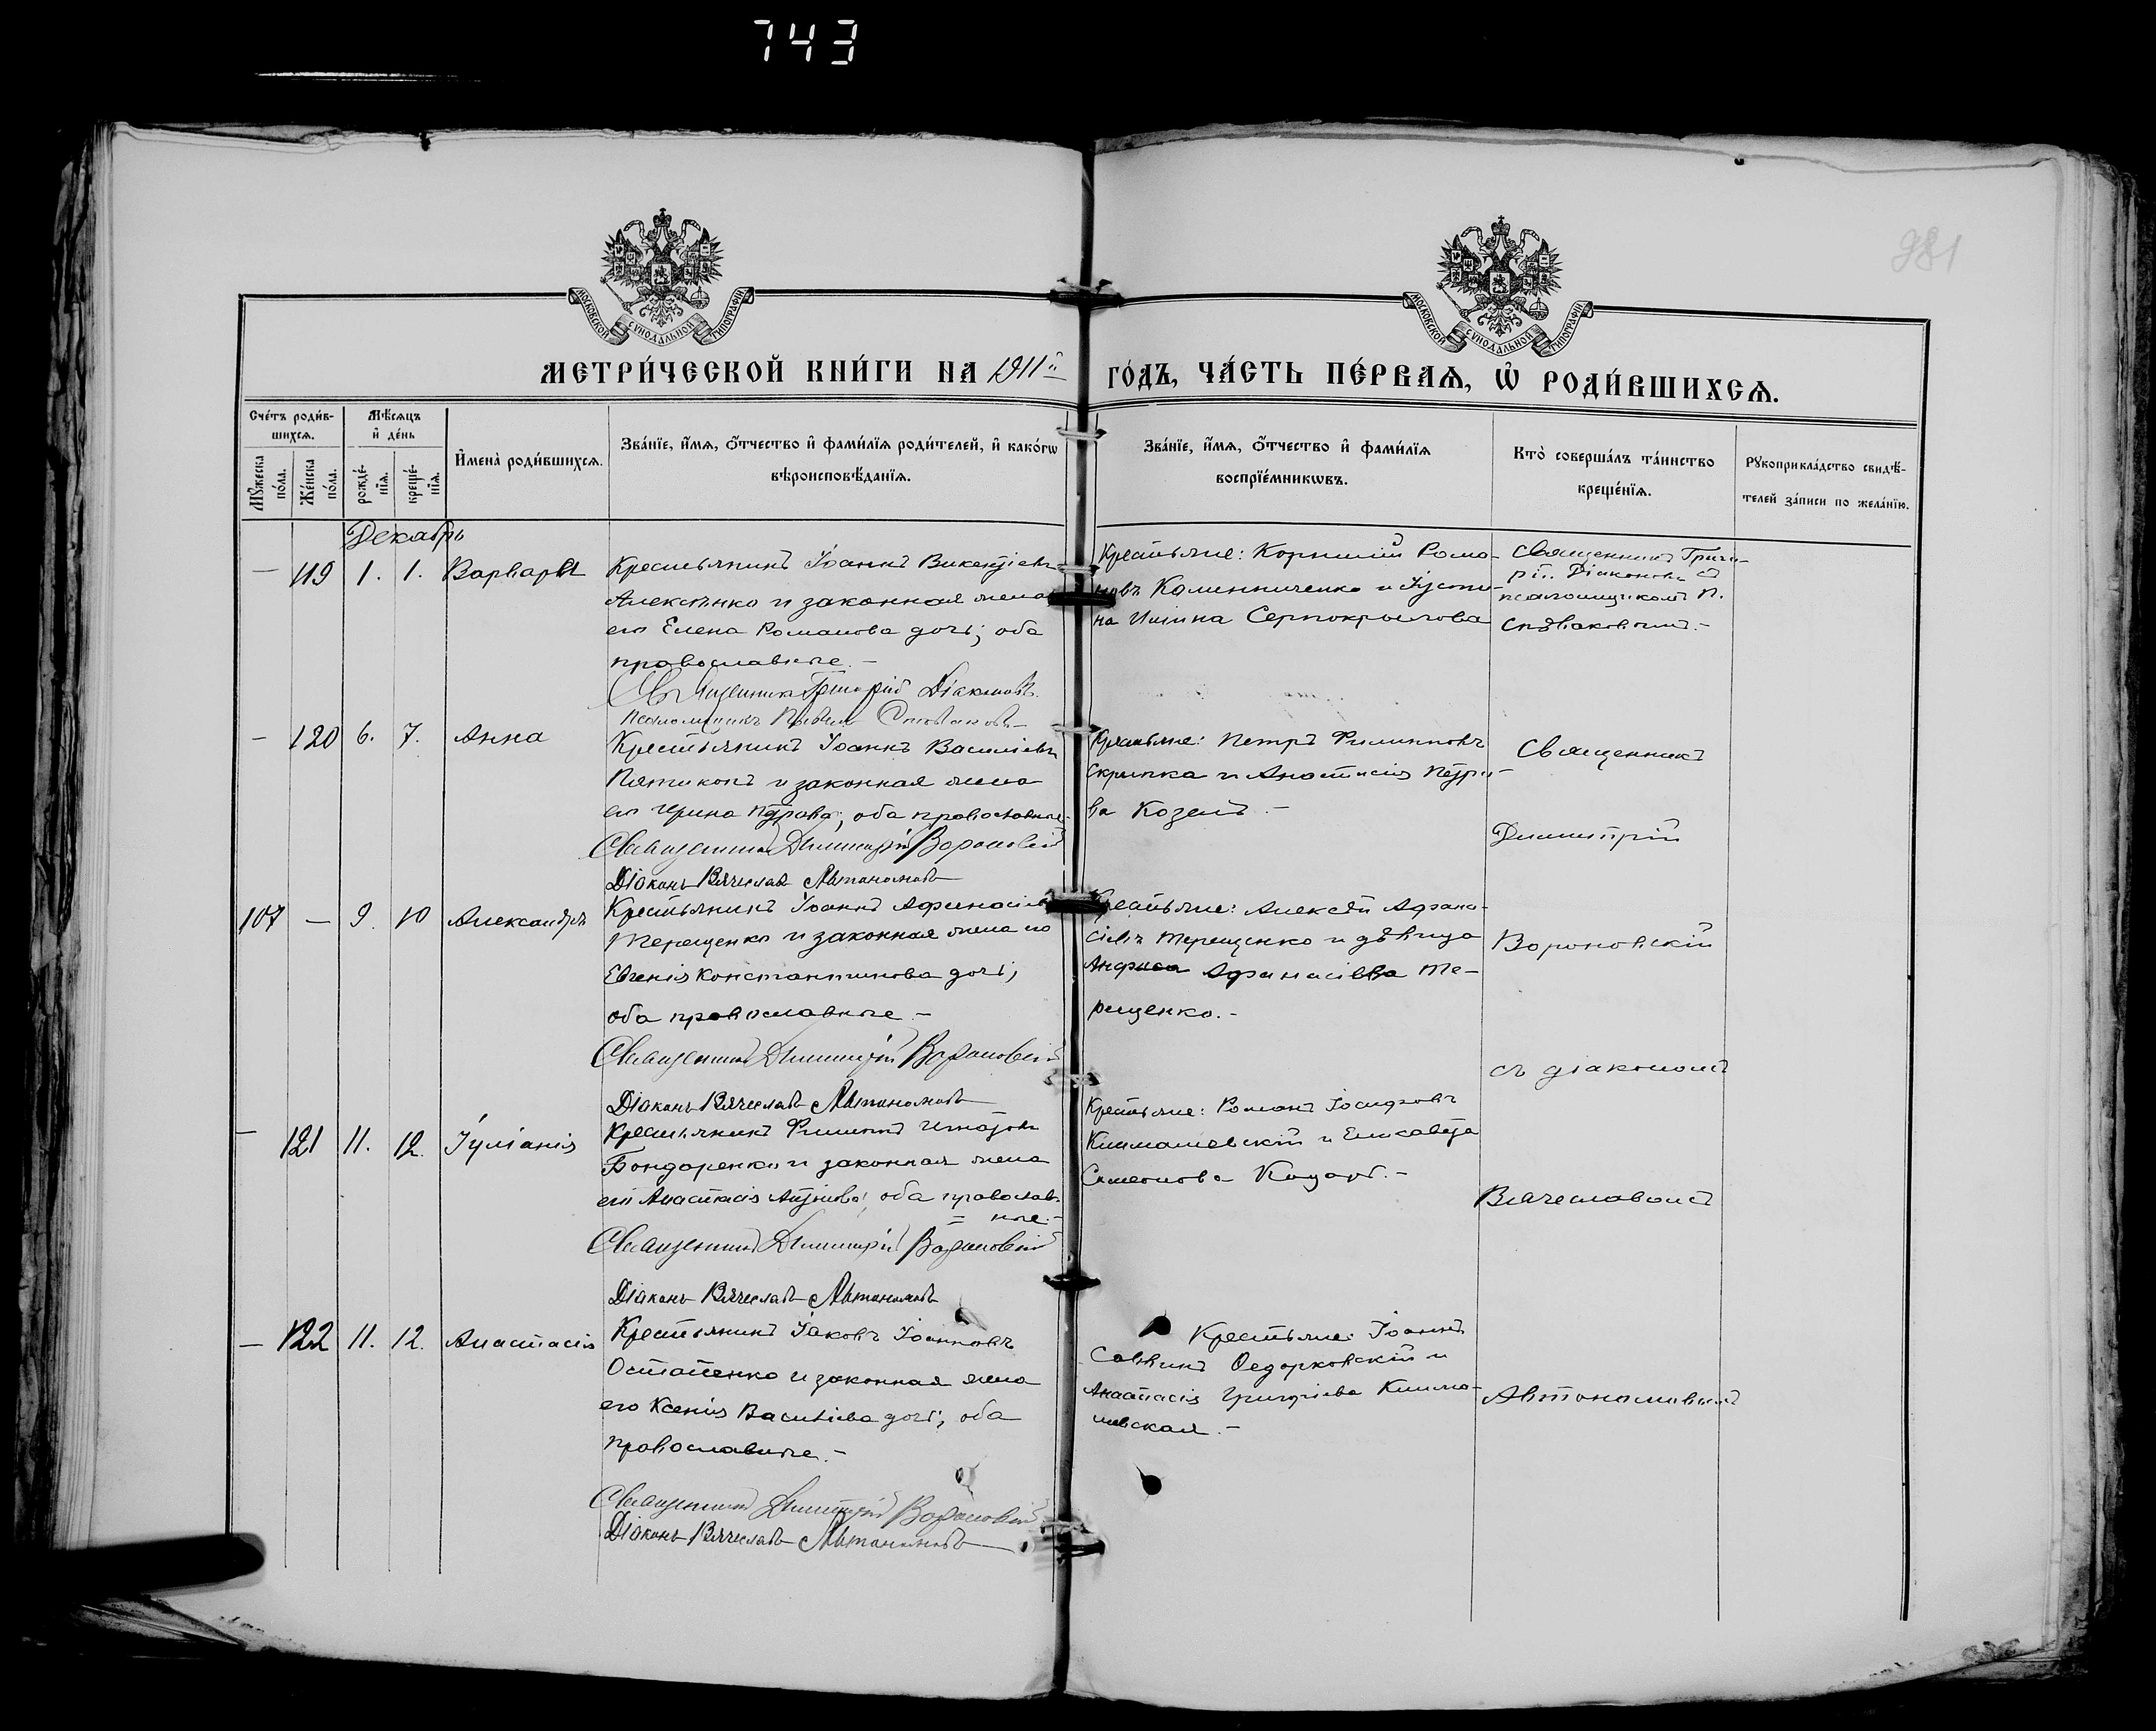 743
981
МОСКОВСКОЙ СѴНОДАЛЬНОЙ ТИПОГРАФІИ
МОСКОВСКОЙ СѴНОДАЛЬНОЙ ТИПОГРАФІИ
МЕТРИ́ЧЕСКОЙ КНИ́ГИ НА 1911й
ГО́ДЪ, ЧА́СТЬ ПЕ́РВАѦ, Ѡ҆ РОДИ́ВШИХСѦ.
Сче́тъ роди́в-
шихсѧ.
Мꙋ́жеска по́ла.
Же́нска по́ла.
Мѣ́сѧцъ
и҆ де́нь
рожде́-
нїѧ.
креще́-
нїѧ.
И҆мена̀ роди́вшихсѧ.
Зва́нїе, и҆́мѧ, ѻ҆́тчество и҆ фами́лїѧ роди́телей, и҆ како́гѡ
вѣроисповѣ́данїѧ.
Зва́нїе, и҆́мѧ, ѻ҆́тчество и҆ фами́лїѧ
воспрїе́мникѡвъ.
Кто̀ соверша́лъ та́инство
креще́нїѧ.
Рꙋкоприкла́дство свидѣ́-
телей за́писи по жела́нїю.
Декабрь
— 119 1. 1. Варвара
Крестьянинъ Іоаннъ Викентіевъ
Алексѣнко и законная жена
его Елена Романова дочь; оба
православные. —
Священникъ Григорій Діаконовъ.
Псаломщикъ Павелъ Співаковъ
Крестьяне: Корнилій Рома-
новъ Калинниченко и Іусти-
на Ильина Сернокрылова
Священникъ Григо-
рій Діаконовъ съ
псаломщикомъ П.
Співаковымъ. —
— 120 6. 7. Анна
Крестьянинъ Іоаннъ Василіевъ
Пятикопъ и законная жена
его Ирина Петрова; оба православные.
Священникъ Димитрій Вороновскій
Діаконъ Вячеславъ Автономовъ
Крестьяне: Петръ Филипповъ
Скрипка и Анастасія Петро-
ва Козелъ. —
Священникъ
Димитрій
107 — 9. 10 Александръ
Крестьянинъ Іоаннъ Афанасіевъ
Терещенко и законная жена его
Евгенія Константинова дочь;
оба православные. —
Священникъ Димитрій Вороновскій
Діаконъ Вячеславъ Автономовъ
Крестьяне: Алексѣй Афана-
сіевъ Терещенко и дѣвица
Афанасіева Те-
рещенко. —
Вороновскій
съ діакономъ
— 121 11. 12. Іуліанія
Крестьянинъ Филиппъ Игнатовъ
Бондаренко и законная жена
его Анастасія Антонова; оба православ-
ные. —
Священникъ Димитрій Вороновскій
Діаконъ Вячеславъ Автономовъ
Крестьяне: Романъ Іосифовъ
Климашевскій и Елисавета
Симеонова Коцарь. —
Вячеславомъ
— 122 11. 12. Анастасія
Крестьянинъ Іаковъ Іоанновъ
Остапенко и законная жена
его Ксенія Василіева дочь; оба
православные. —
Священникъ Димитрій Вороновскій
Діаконъ Вячеславъ Автономовъ
Крестьяне: Іоаннъ
Саввинъ Ѳедорковскій и
Анастасія Григоріева Клима-
шевская. —
Автономовымъ